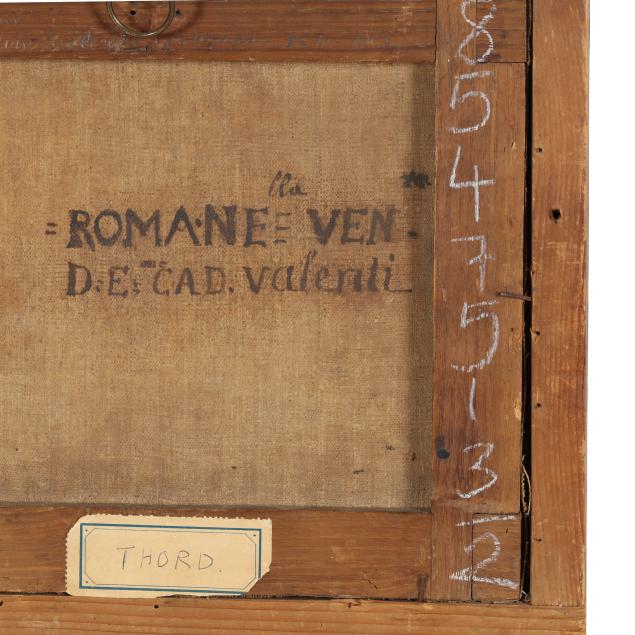 lla
= ROMA·NE = VEN -
D. E.mc CAD. Valenti
8
5
4
7
5
-
3
12
THORD.